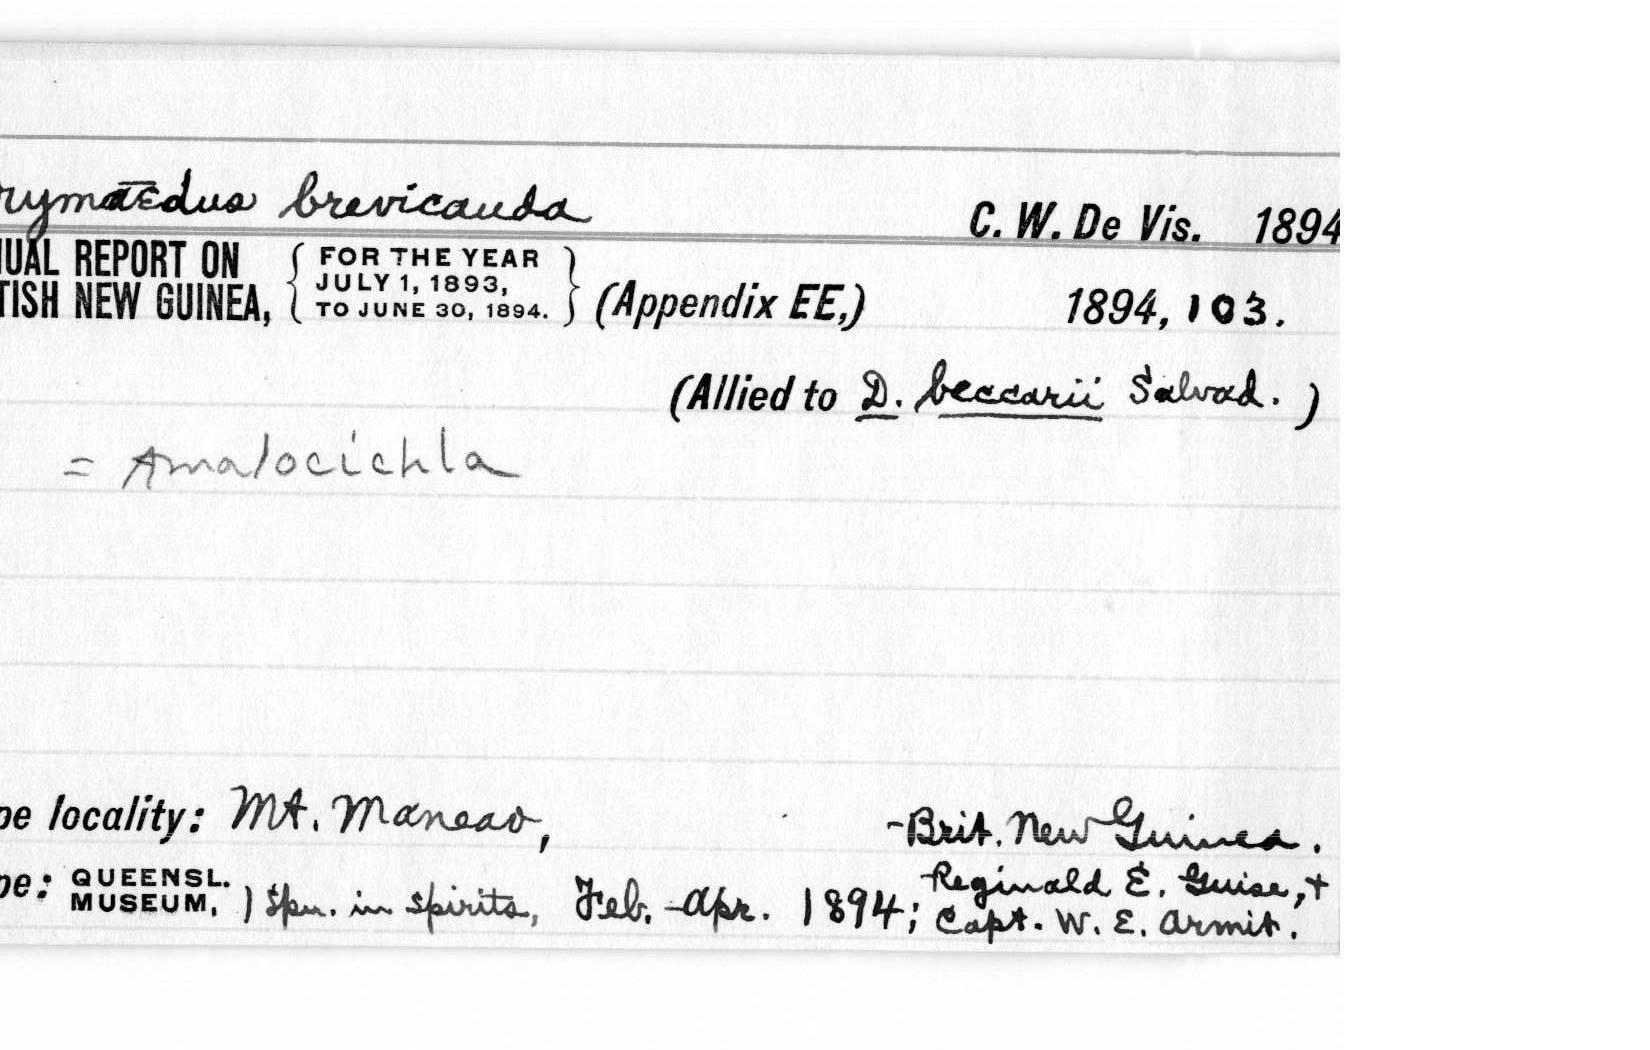 rymaedus brevicauda C. W. De Vis. 1894
NUAL REPORT ON { FOR THE YEAR
JULY 1, 1893,
TO JUNE 30, 1894. } (Appendix EE,) 1894, 103.
TISH NEW GUINEA,
(Allied to D. beccarii Salvad. )
= Amalocichla
pe locality: Mt. Maneao, -Brit. New Guinea.
pe: QUEENSL.
MUSEUM, 1 Spn. in spirits, Feb. -Apr. 1894; Reginald E. Guise, +
Capt. W. E. Armit.